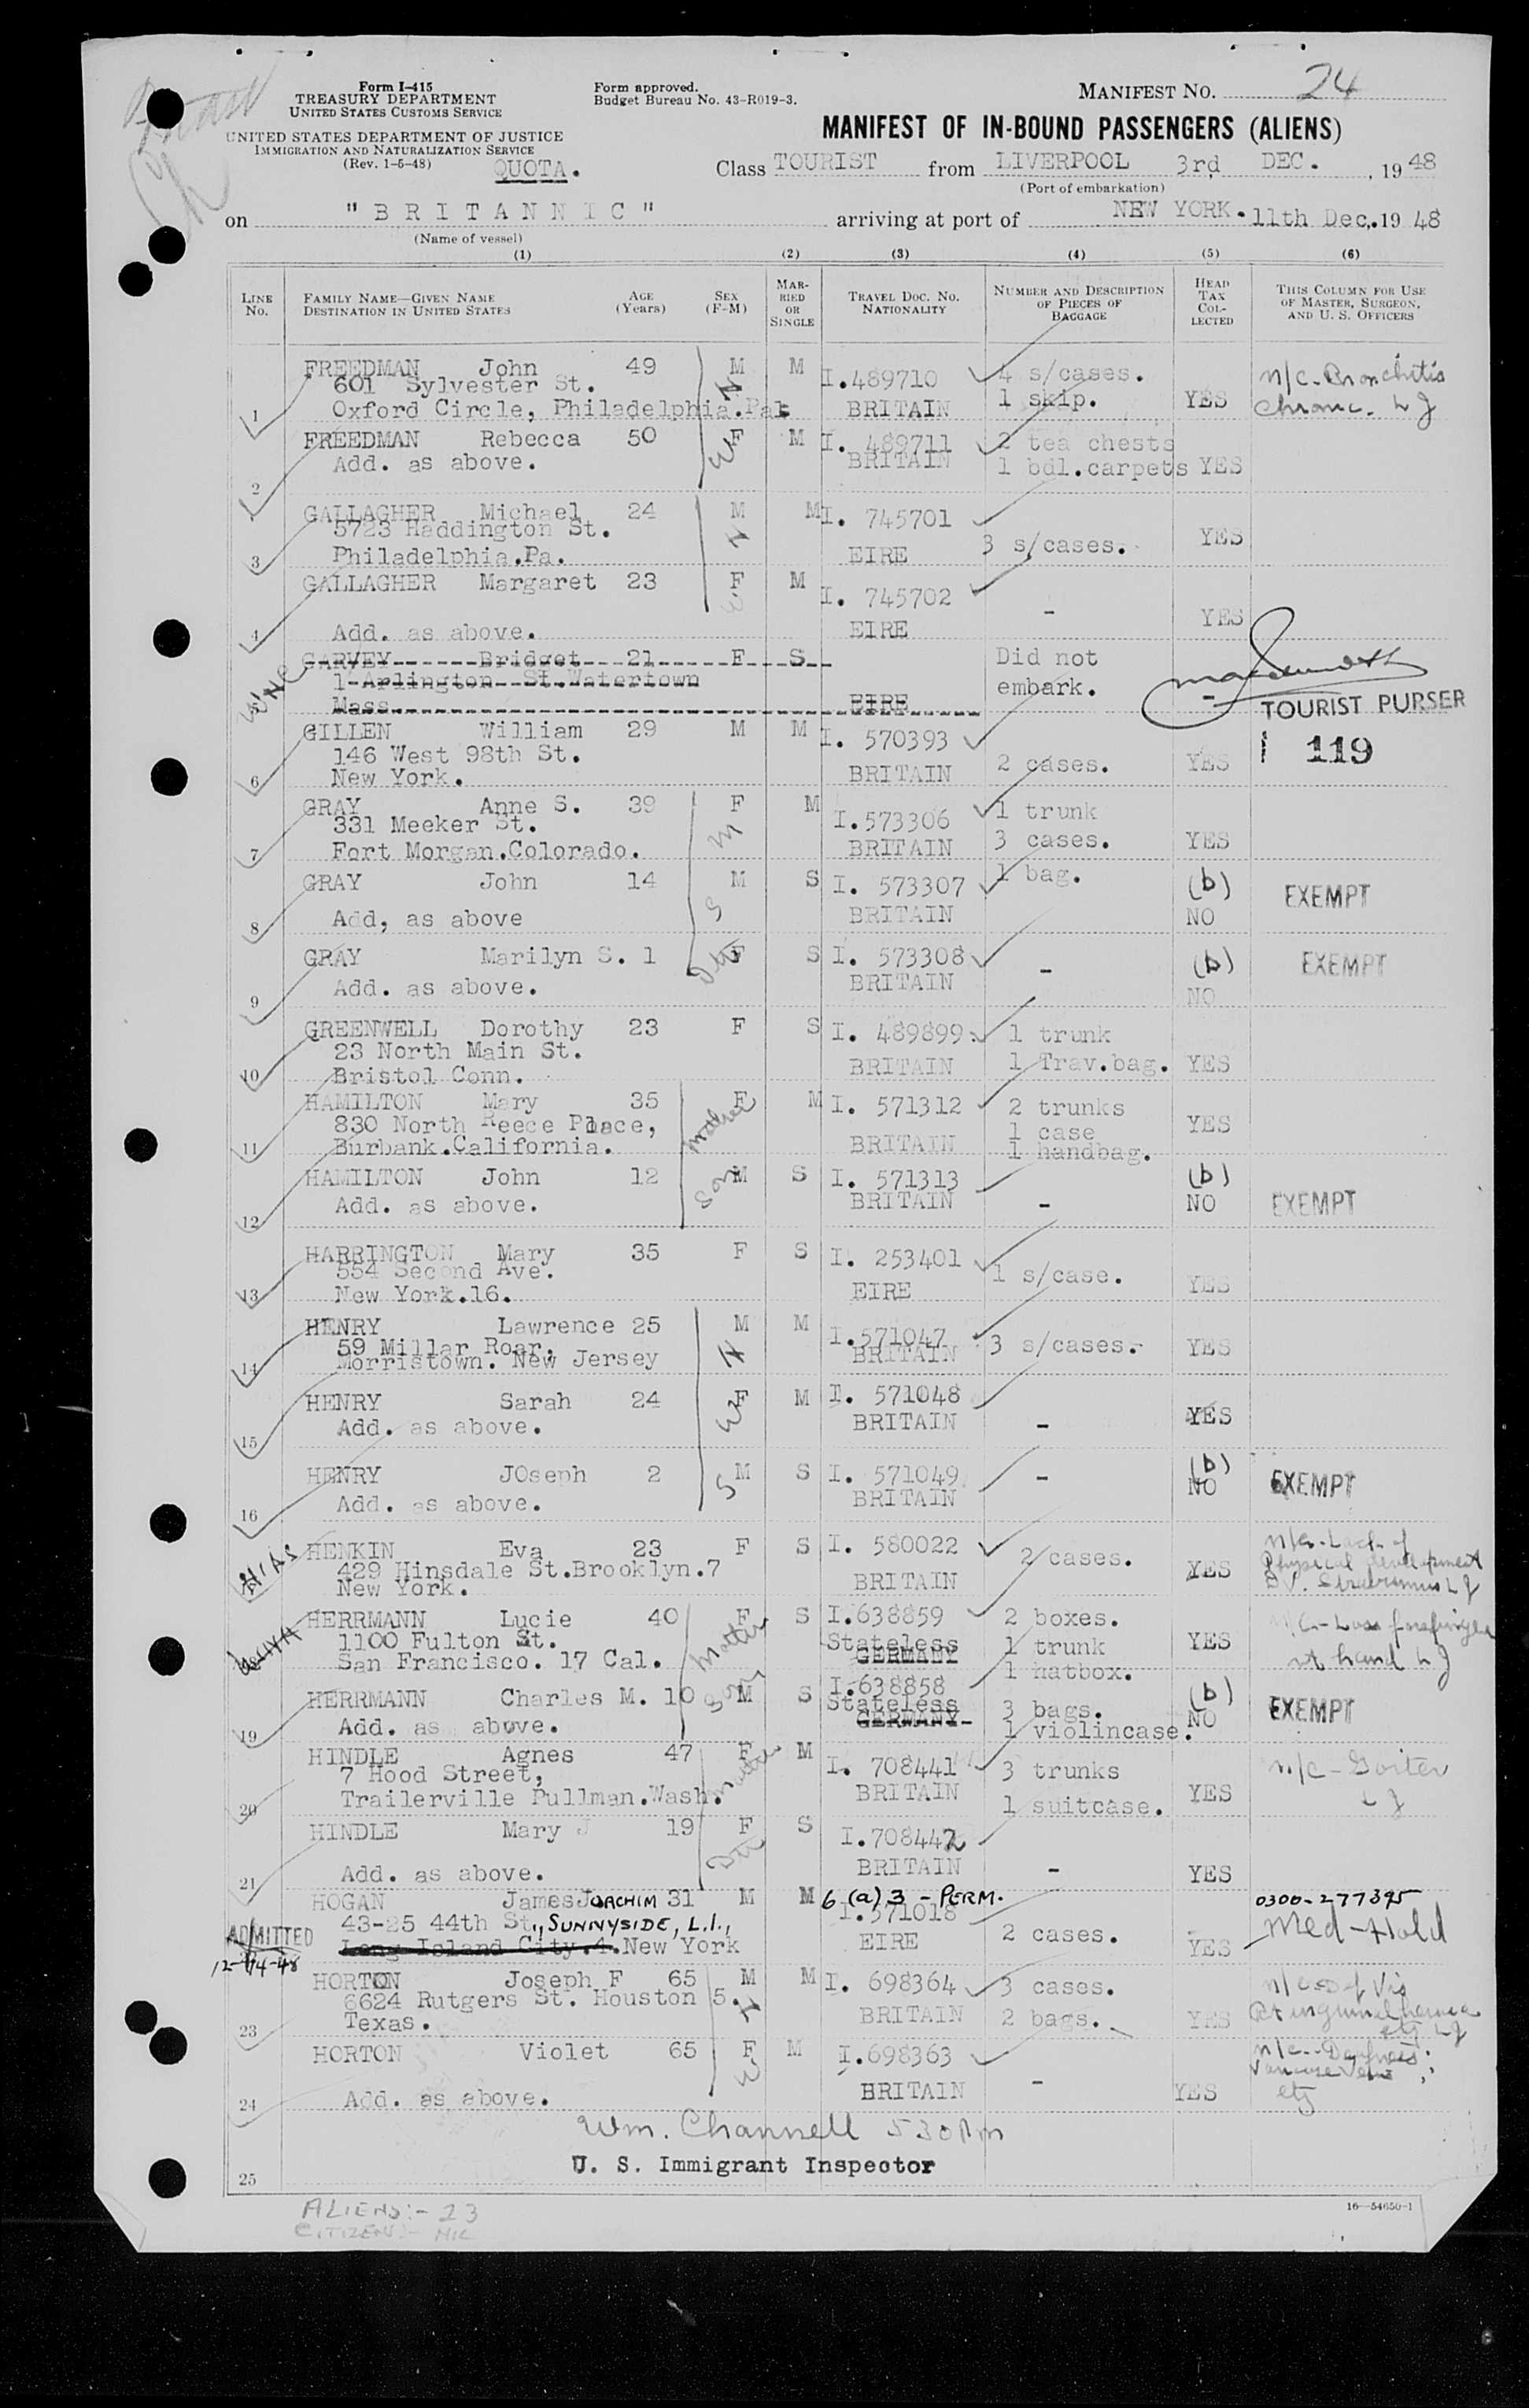 Form I-415
TREASURY DEPARTMENT
UNITED STATES CUSTOMS SERVICE
UNITED STATES DEPARTMENT OF JUSTICE
IMMIGRATION AND NATURALIZATION SERVICE
(Rev. 1-5-48)
QUOTA.
Form approved.
Budget Bureau No. 43-R019-3.
MANIFEST NO. 24
MANIFEST OF IN-BOUND PASSENGERS (ALIENS)
Class TOURIST from LIVERPOOL 3rd DEC. , 19 48
(Port of embarkation)
on "BRITANNIC" arriving at port of NEW YORK. 11th Dec,. 19 48
(Name of vessel)
(1) (2) (3) (4) (5) (6)
LINE NO.
FAMILY NAME—GIVEN NAME
DESTINATION IN UNITED STATES
AGE (Years)
SEX (F-M)
MARRIED OR SINGLE
TRAVEL DOC. NO. NATIONALITY
NUMBER AND DESCRIPTION OF PIECES OF BAGGAGE
HEAD TAX COLLECTED
THIS COLUMN FOR USE OF MASTER, SURGEON, AND U. S. OFFICERS
FREEDMAN John 49 M M I.489710 4 s/cases. n/c-Bronchitis
601 Sylvester St. 1 skip. YES Chronic. LJ
1 Oxford Circle, Philadelphia.Pa. BRITAIN
H
FREEDMAN Rebecca 50 F M I. 489711 2 tea chests
2 Add. as above. BRITAIN 1 bdl.carpets YES
W
GALLAGHER Michael 24 M M I. 745701
5723 Haddington St. 3 s/cases. YES
3 Philadelphia.Pa. EIRE
H
GALLAGHER Margaret 23 F M I. 745702 - YES
4 Add. as above. EIRE
W
GARVEY Bridget 21 F S Did not
1 Arlington St.Watertown embark.
Mass. EIRE
TOURIST PURSER
119
GILLEN William 29 M M I. 570393
146 West 98th St. 2 cases. YES
6 New York. BRITAIN
GRAY Anne S. 39 F M I.573306 1 trunk
331 Meeker St. 3 cases. YES
7 Fort Morgan.Colorado. BRITAIN
M
GRAY John 14 M S I. 573307 1 bag. (b) EXEMPT
8 Add, as above BRITAIN NO
S
GRAY Marilyn S. 1 F S I. 573308 - (b) EXEMPT
9 Add. as above. BRITAIN NO
Dtr
GREENWELL Dorothy 23 F S I. 489899. 1 trunk
23 North Main St. 1 Trav.bag. YES
10 Bristol Conn. BRITAIN
HAMILTON Mary 35 F M I. 571312 2 trunks
830 North Reece Place, 1 case YES
11 Burbank.California. BRITAIN 1 handbag.
Mother
HAMILTON John 12 M S I. 571313 (b)
12 Add. as above. BRITAIN - NO EXEMPT
Son
HARRINGTON Mary 35 F S I. 253401
554 Second Ave. 1 s/case. YES
13 New York.16. EIRE
HENRY Lawrence 25 M M I.571047 3 s/cases. YES
59 Millar Roar,
14 Morristown. New Jersey BRITAIN
H
HENRY Sarah 24 F M I. 571048
15 Add. as above. BRITAIN - YES
W
HENRY JOseph 2 M S I. 571049 - (b) EXEMPT
16 Add. as above. BRITAIN NO
S
HIAS
HENKIN Eva 23 F S I. 580022 2 cases. n/c-Lack of
429 Hinsdale St.Brooklyn.7 YES Physical development
New York. BRITAIN LJ
HERRMANN Lucie 40 F S I.638859 2 boxes.
1100 Fulton St. Stateless 1 trunk YES
San Francisco. 17 Cal. GERMANY 1 hatbox. rt hand LJ
Mother
HERRMANN Charles M. 10 M S I.638858 3 bags. (b) EXEMPT
19 Add. as above. Stateless GERMANY 1 violincase. NO
Son
HINDLE Agnes 47 F M I. 708441 3 trunks n/c-Goiter
7 Hood Street, YES LJ
20 Trailerville Pullman.Wash. BRITAIN 1 suitcase.
Mother
HINDLE Mary J 19 F S I.708442
21 Add. as above. BRITAIN - YES
Dtr
HOGAN James JOACHIM 31 M M 6(a)3 - PERM. 0300-277395
43-25 44th St., SUNNYSIDE, L.I., I.571018 2 cases. YES Med-Hold
ADMITTED Long Island City.4. New York EIRE
12-14-48
HORTON Joseph F 65 M M I. 698364 3 cases. n/c-Def Vis
6624 Rutgers St. Houston 5. 2 bags. YES Rt inguinal hernia
23 Texas. BRITAIN LJ
H
HORTON Violet 65 F M I.698363 n/c-Deafness;
24 Add. as above. BRITAIN - YES Varicose Veins
W
Wm. Channell 530 Pm
U. S. Immigrant Inspector
25
ALIENS:- 23
CITIZENS:- NIL
16—54650-1